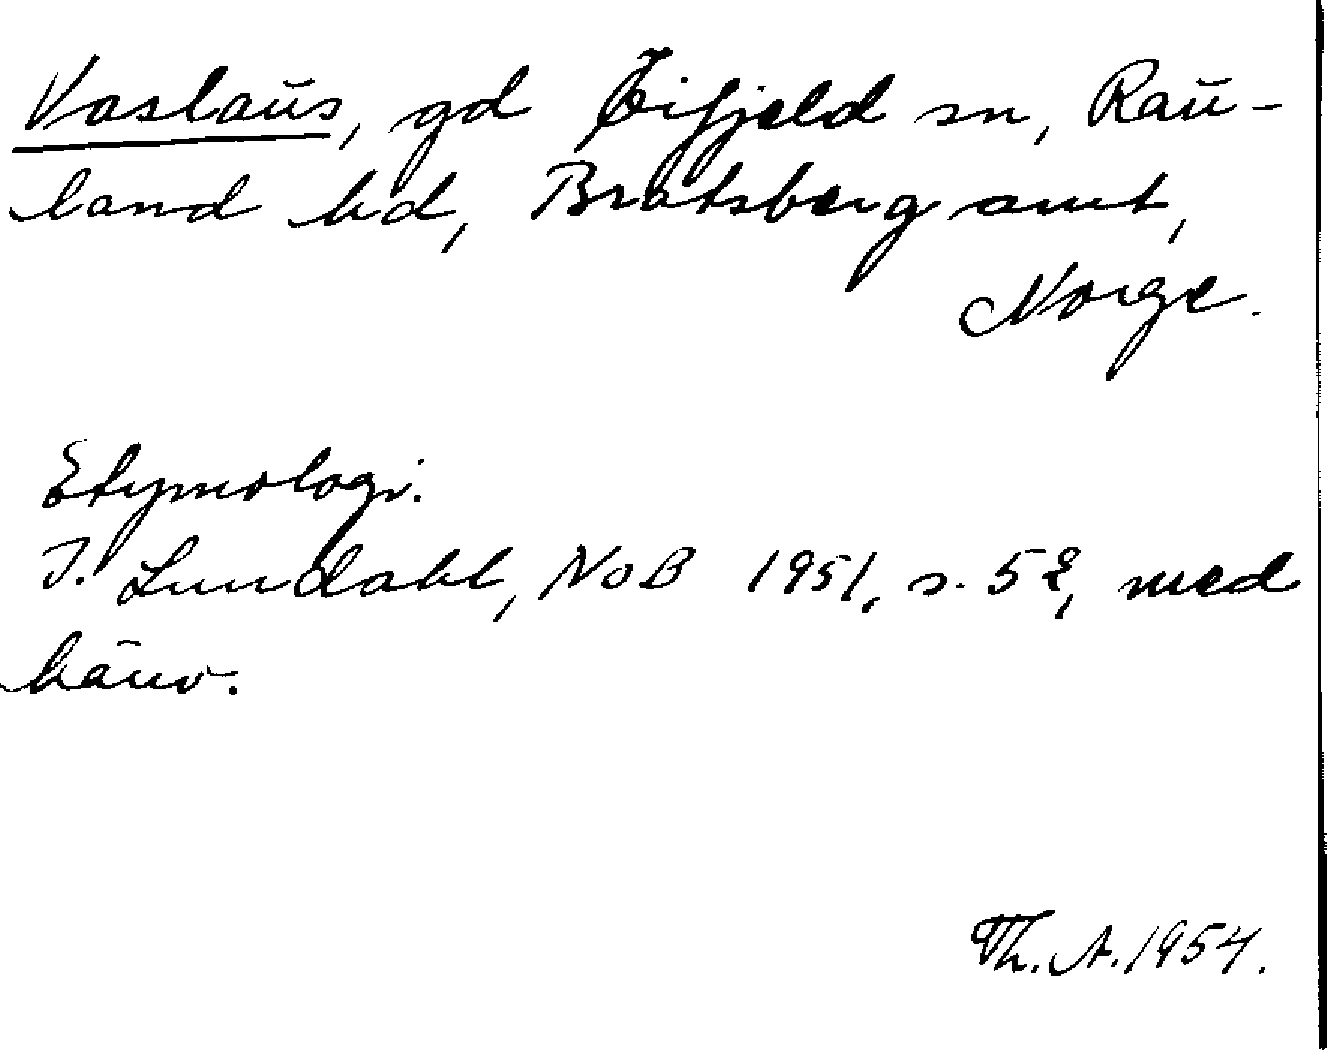 Vaslaus, gd Øifjeld sn, Rau-
land hd, Bratsberg amt,
Norge.
Etymologi.
I. Lundahl, NoB 1951, s. 52, med
hänv.
Th. A. 1954.